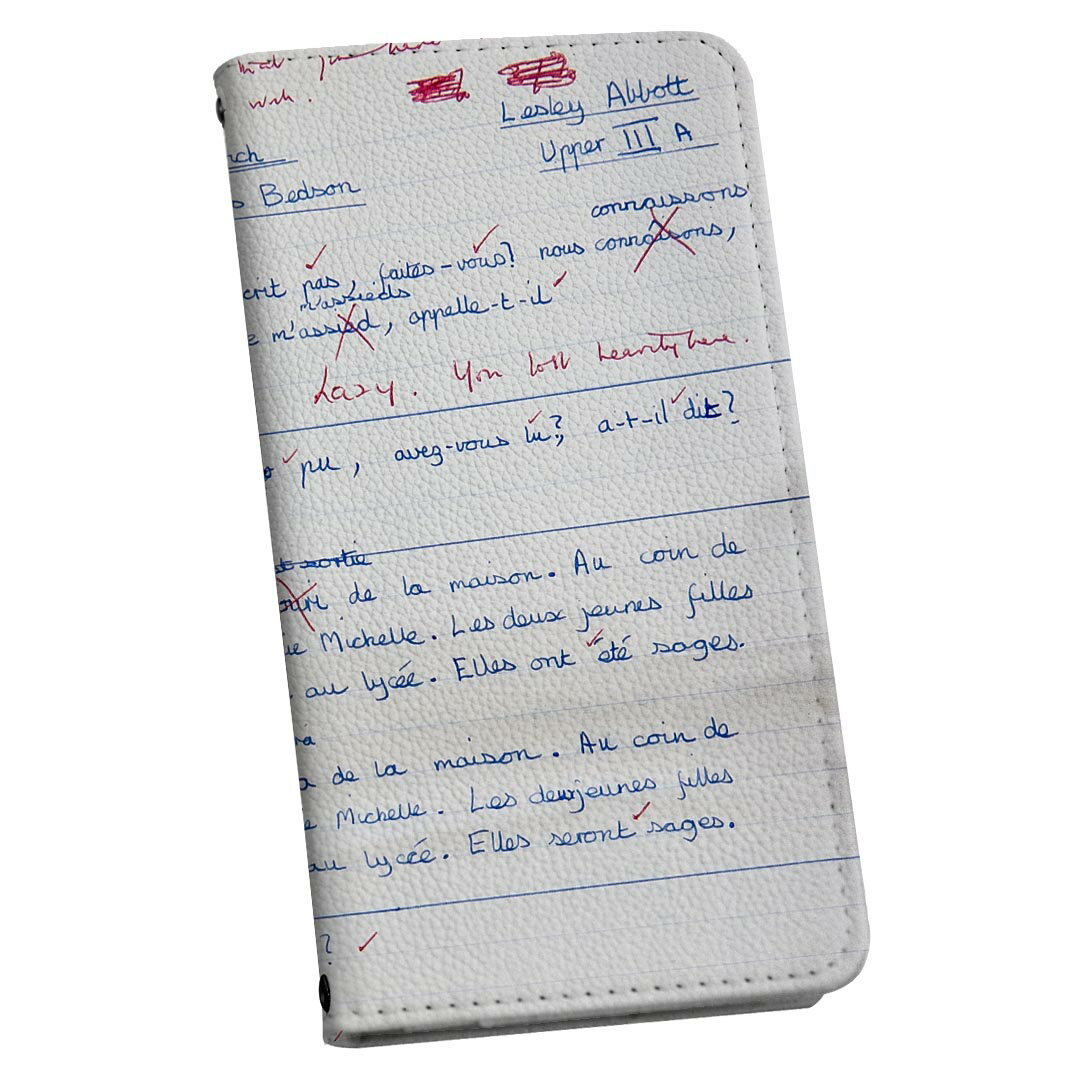 Lesley Abbott
Upper III A
Bedson
connaissons
pas, faites-vous? nous connaîsons,
m'assieds
m'assied, appelle-t-il
Lazy. You lose heavily here.
pu, avez-vous lu? a-t-il dit?
sortie
de la maison. Au coin de
Michelle. Les deux jeunes filles
au lycée. Elles ont été sages.
de la maison. Au coin de
Michelle. Les deux jeunes filles
au lycée. Elles seront sages.
?